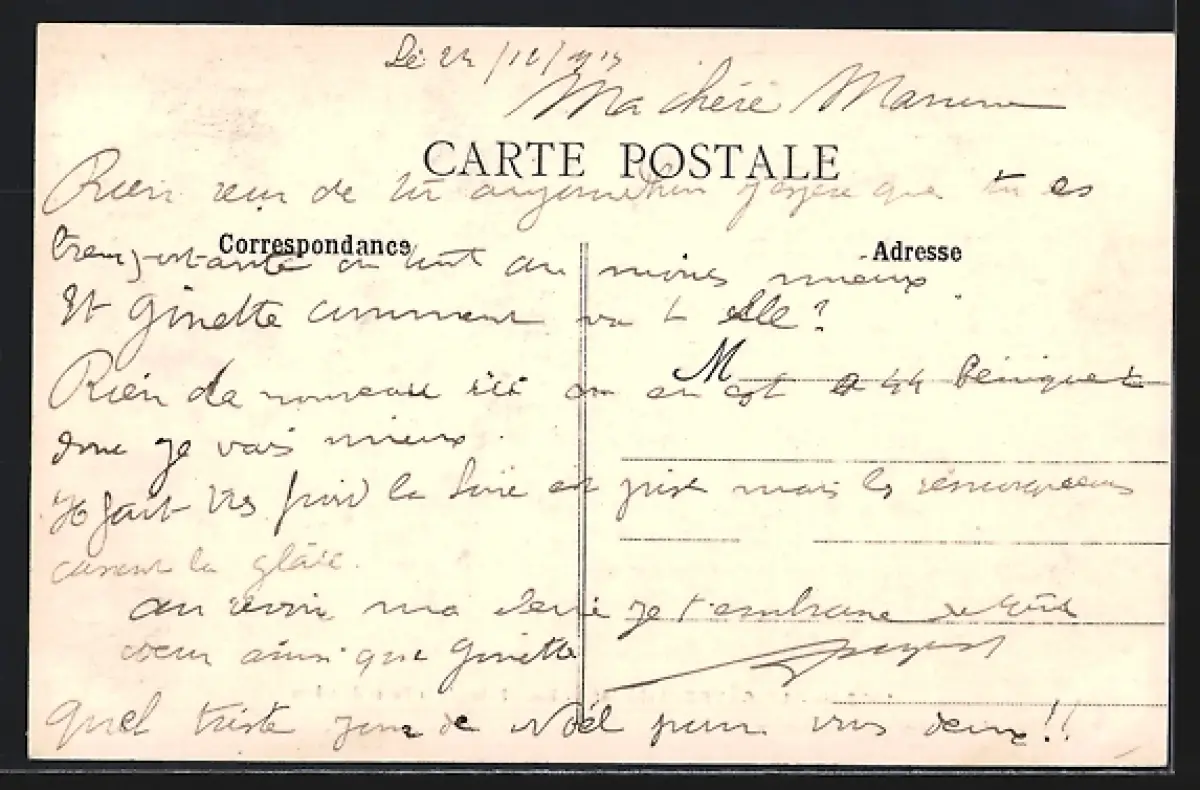 Le 24/12/19
Ma chère Maman
CARTE POSTALE
Rien reçu de toi aujourd'hui j'espère que tu es
Correspondance
Adresse
ou tout au moins mieux.
Et Ginette comment va t elle?
M
Rien de nouveau ici on en est a 44
donc je vais mieux.
Il fait très froid la Loire est prise mais les remorqueurs
cassent la glace.
au revoir ma je t'embrasse de tout
coeur ainsi que Ginette
Quel triste jour de Noël pour vous deux!!